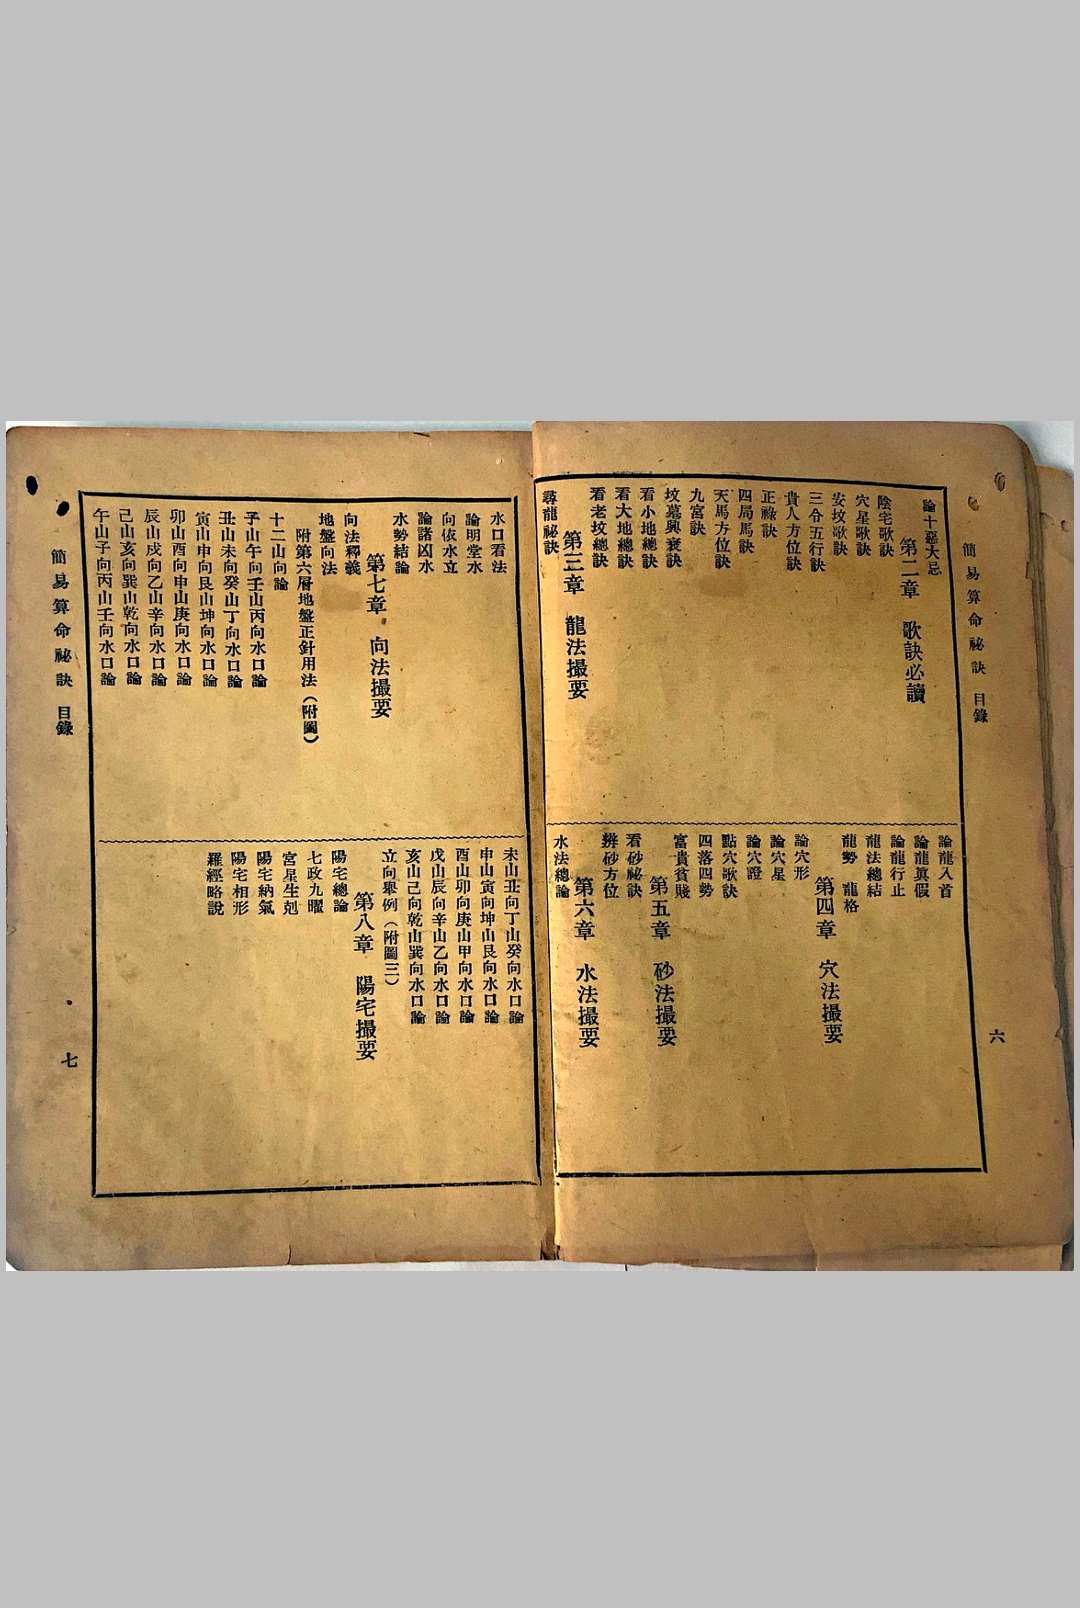 簡易算命祕訣 目錄
六
論十惡大忌
第二章 歌訣必讀
陰宅歌訣
穴星歌訣
安坟歌訣
三令五行訣
貴人方位訣
正祿訣
四局馬訣
天馬方位訣
九宮訣
坟墓興衰訣
看小地總訣
看大地總訣
看老坟總訣
第三章 龍法撮要
尋龍祕訣
論龍入首
論龍眞假
論龍行止
龍法總結
龍勢 龍格
第四章 穴法撮要
論穴形
論穴星
論穴證
點穴歌訣
四落四勢
富貴貧賤
第五章 砂法撮要
看砂祕訣
辨砂方位
第六章 水法撮要
水法總論
水口看法
論明堂水
向依水立
論諸凶水
水勢結論
第七章 向法撮要
向法釋義
地盤向法
附第六層地盤正針用法（附圖）
十二山向論
子山午向壬山丙向水口論
丑山未向癸山丁向水口論
寅山申向艮山坤向水口論
卯山酉向甲山庚向水口論
辰山戌向乙山辛向水口論
己山亥向巽山乾向水口論
午山子向丙山壬向水口論
未山丑向丁山癸向水口論
申山寅向坤山艮向水口論
酉山卯向庚山甲向水口論
戊山辰向辛山乙向水口論
亥山己向乾山巽向水口論
立向舉例（附圖三）
第八章 陽宅撮要
陽宅總論
七政九曜
宮星生剋
陽宅納氣
陽宅相形
羅經略說
簡易算命祕訣 目錄
七